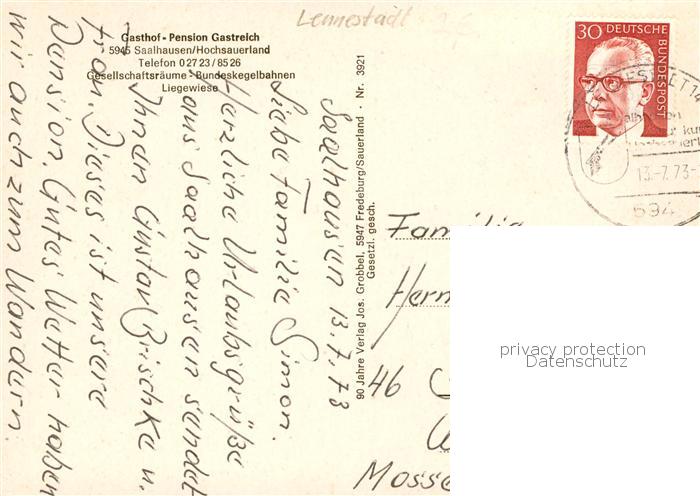 Lennestadt
Gasthof - Pension Gastreich
5945 Saalhausen/Hochsauerland
Telefon 0 27 23 / 85 26
Gesellschaftsräume · Bundeskegelbahnen
Liegewiese
Saalhausen 13.7.73
Liebe Familie Simon.
Herzliche Urlaubsgrüße
aus Saalhausen sendet
Ihnen Gustav Brischke u.
Frau. Dieses ist unsere
Pension, Gutes Wetter haben
wir auch zum Wandern.
90 Jahre Verlag Jos. Grobbel, 5947 Fredeburg/Sauerland · Nr. 3921
Gesetzl. gesch.
30 DEUTSCHE
BUNDESPOST
13.-7.73-
594
Familie
Herm
46
Mosse
privacy protection
Datenschutz